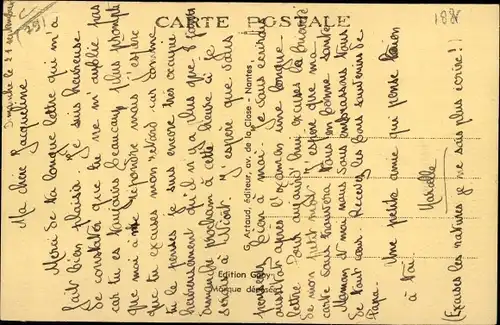 CARTE POSTALE
188
G. Artaud, éditeur, av. de la Close - Nantes
Edition Gaby
Marque déposée
Dimanche le 21 septembre
Ma chère Jacqueline
Merci de ta longue lettre qui m'a
fait bien plaisir. Je suis heureuse
de constater que tu ne m'oublie pas
car tu es toujours beaucoup plus prompte
que moi à me répondre mais j'espère
que tu excuses mon retard car comme
tu le penses je suis encore très occupée
heureusement qu'il n'y a plus que 8 jours
dimanche prochain à cette heure-ci je
serai à Niort. J'espère que vous
penserez bien à moi. Je vous écrirai
aussitôt après l'examen une longue
lettre. Pour aujourd'hui excuses la brièveté
de mon petit mot. J'espère que ma
carte vous trouvera tous en bonne santé
Maman et moi nous vous embrassons tous
de tout cœur. Recevez les bons souvenirs de
Papa.
Une petite amie qui pense bien
à toi
Marcelle
(Excuses les ratures je ne sais plus écrire!!)